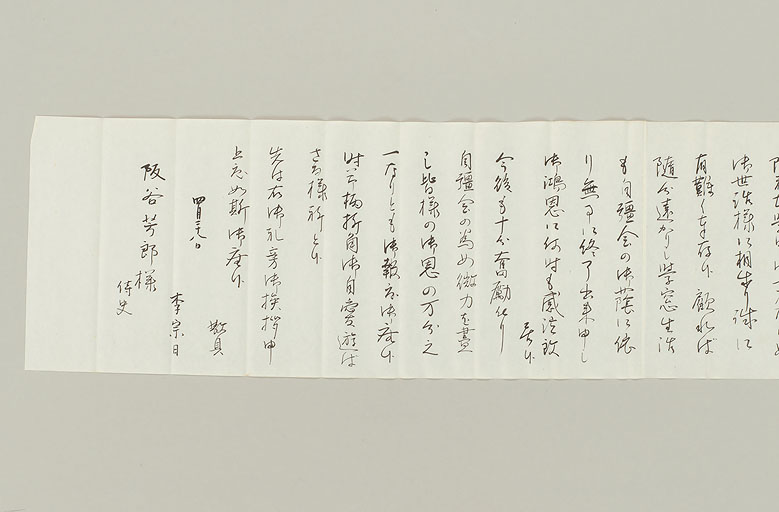 御世話様に相成り誠に
有難く奉存候 顧れば
随分遠かりし学窓生活
も自彊会の御蔭に依
り無事に終了出来申し
御鴻恩に何時も感泣致
居候
今後も十分奮励仕り
自彊会の為め微力を盡
し皆様の御恩の万分之
一なりとも御報度御座候
時下柄折角御自愛遊ば
さる様祈上候
先は右御礼旁御挨拶申
上度如斯御座候
敬具
四月二八日
李宗日
阪谷芳郎様
侍史